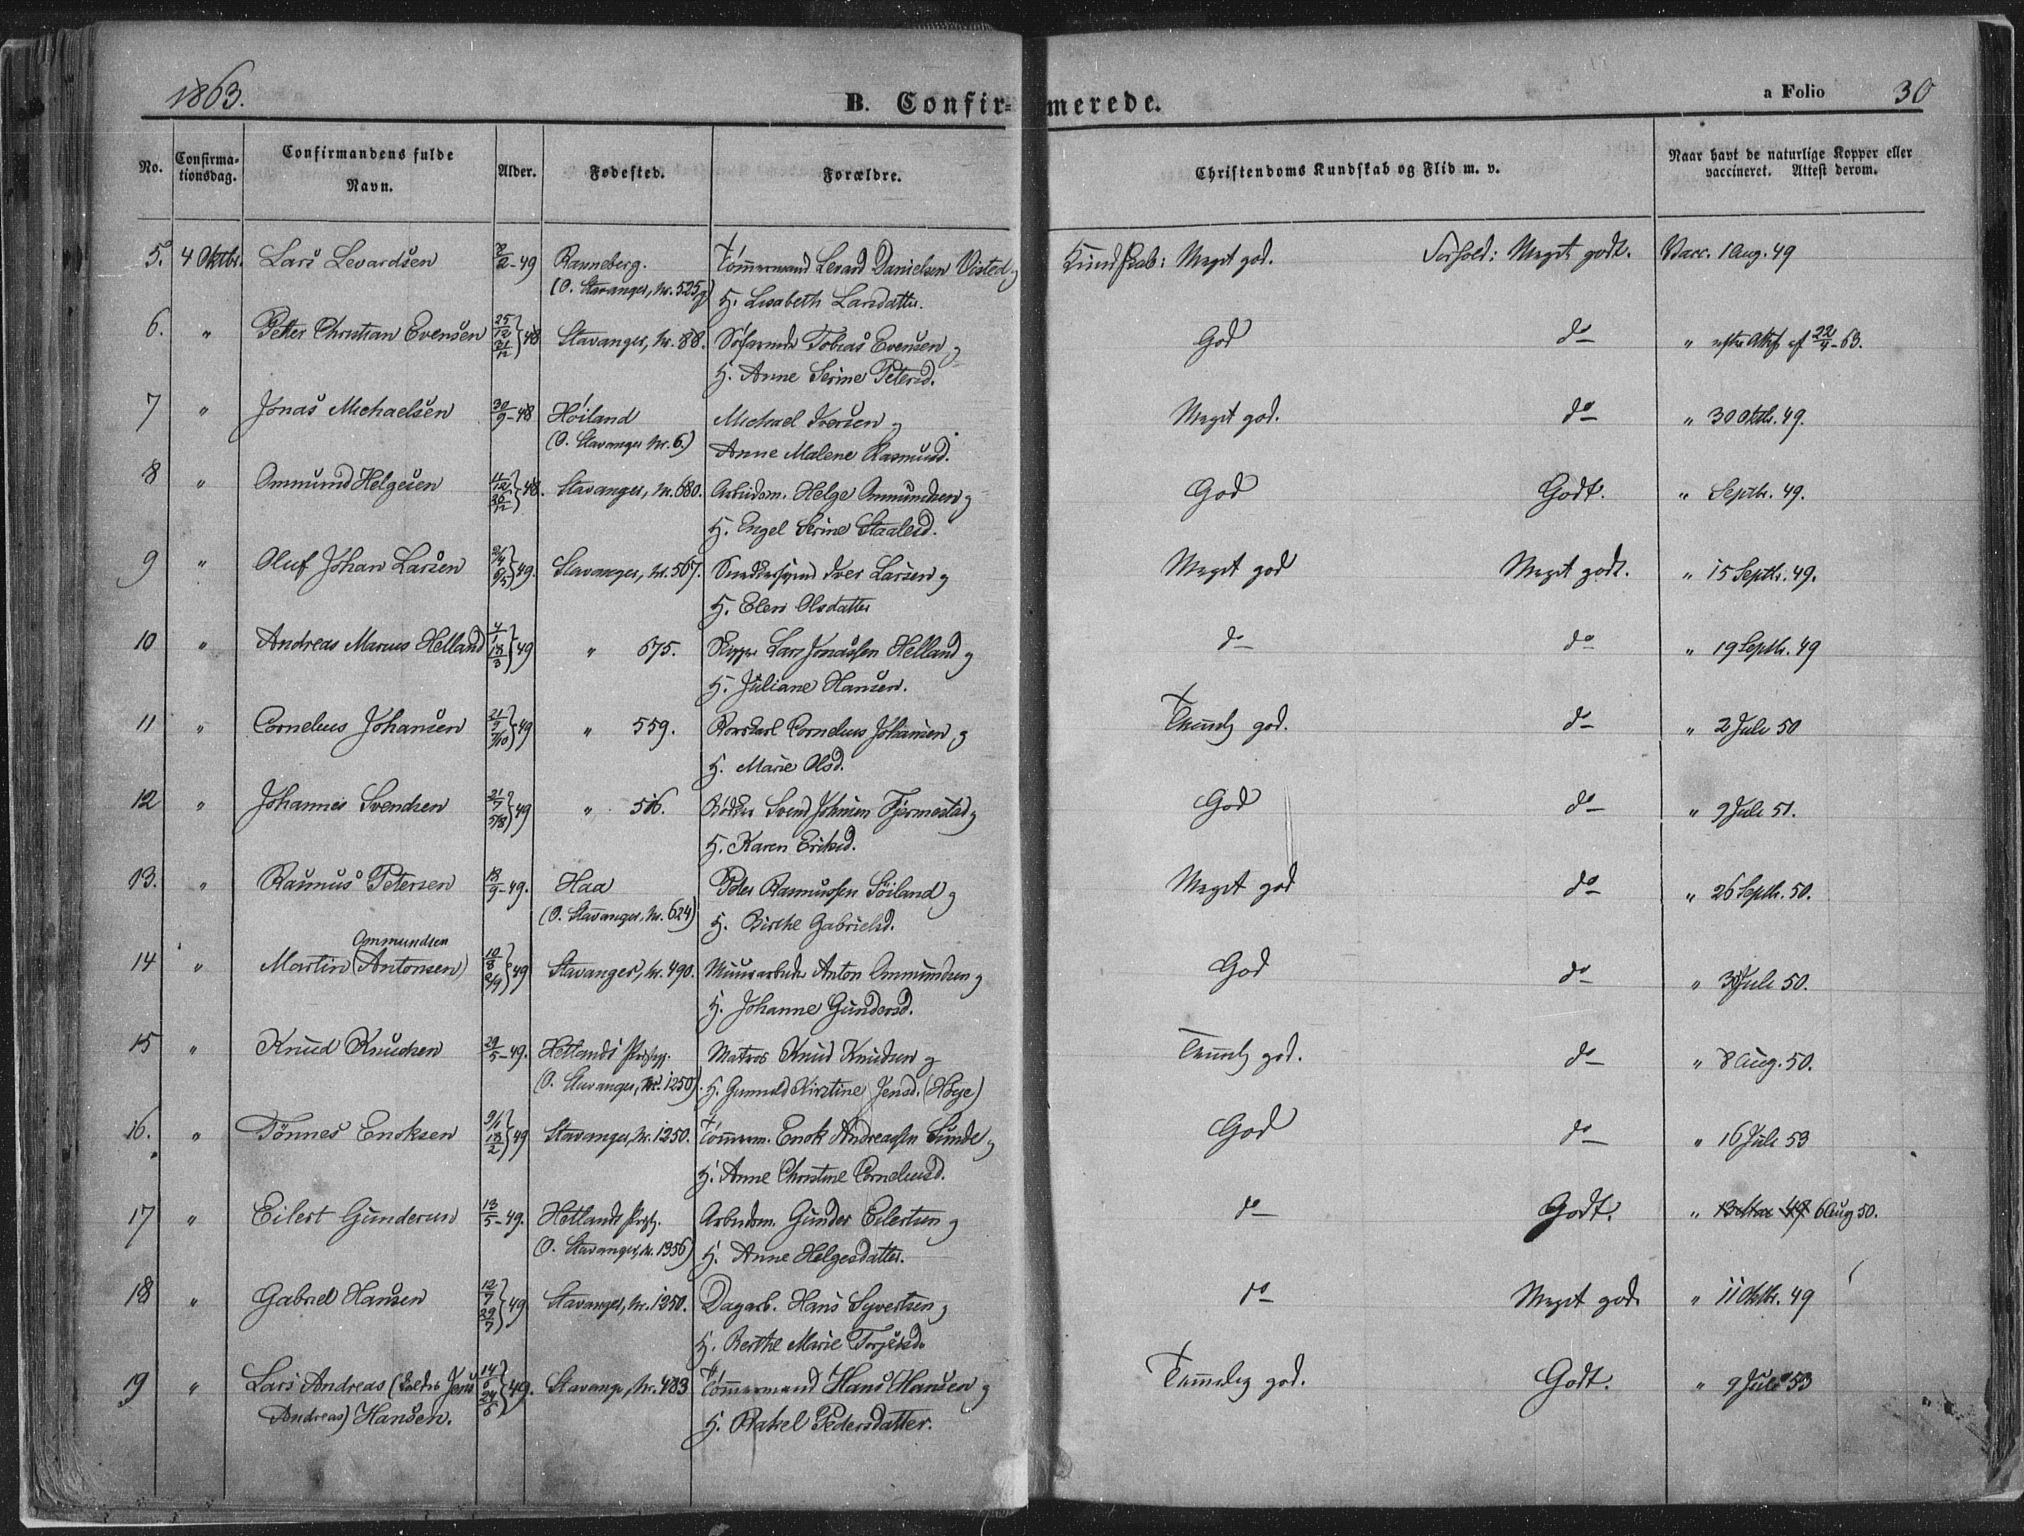 1863.
B. Confirmerede.
a Folio 30
No.
Confirmationsdag.
Confirmandens fulde Navn.
Alder.
Fødested.
Forældre.
Christendoms Kundskab og Flid m. v.
Naar havt de naturlige Kopper eller vaccineret. Attest derom.
5. 4 Oktbr. Lars Levardsen -49 Ranneberg. Tømmermand Levard Danielsen Visted og Kundskab: Meget god. Forhold: Meget godt. Vacc. 1 Aug. 49
(O. Stavanger, Nr. 525) H. Lisabeth Larsdatter.
6. " Petter Christian Evensen 25/12 } 48 Stavanger, Nr. 88. Tobias Evensen, og God do " efter Att. af 22/4-63.
H. Anne Serine Petersd.
7 " Jonas Michaelsen 30/9-48 Høiland Michael Iversen og Meget god. do " 30 Oktbr. 49.
(O. Stavanger Nr. 6.) Anne Malene Rasmusd.
8 " Ommund Helgesen } 48. Stavanger, Nr. 680. Arbeidsm. Helge Ommundsen og God Godt. " Septbr. 49.
H. Engel Serine Staalesd.
9 " Oluf Johan Larsen } 49. Stavanger, Nr. 567. Iver Larsen og Meget god Meget godt. " 15 Septbr. 49.
H. Elen Olsdatter
10 " Andreas Marcus Helland 4/1 18/3 } 49 " 675. Skipper Lars Jonassen Helland og do do " 19 Septbr. 49
H. Juliane Hansen.
11 " Cornelius Johansen } 49 " 559. Cornelius Johansen, og Temmelig god. do " 2 Juli 50
H. Marie Olsd.
12 " Johannes Svendsen 21/7 5/8 } 49 " 516. Bødker Svend Johnsen Fjermestad og God do " 9 Juli 51.
H. Karen Eriksd.
13. " Rasmus Petersen 18/9-49. Haa Peder Rasmussen Søiland og Meget god do " 26 Septbr. 50.
(O. Stavanger, Nr. 624) H. Birthe Gabrielsd.
Ommundsen
14 " Martin (Antonsen) 10/8 2/9 } 49 Stavanger, Nr. 490. Muurarbeider Anton Ommundsen og God do " 3 Juli 50.
H. Johanne Gundersd.
15 " Knud Knudsen 29/5-49. Hetlands Matros Knud Knudsen og Temmelig god. do " 8 Aug. 50.
(O. Stavanger, Nr. 1250). H. Gunnild Kirstine Jensd. (Høye)
16. " Tønnes Enoksen 9/1 18/2 } 49 Stavanger, Nr. 1250. Tømmerm. Enok Andreassen Sunde og God do " 16 Juli 53
H. Anne Christine Corneliusd.
17 " Eilert Gundersen 13/5-49. Hetlands Arbeidsm. Gunder Eilertsen og do Godt. " 6 Aug 50.
(O. Stavanger, Nr. 1356) H. Anne Helgesdatter.
18 " Gabriel Hansen 12/7 29/7 } 49 Stavanger, Nr. 1250. Dagarb. Hans Syvertsen og do Meget god. " 11 Oktbr. 49
H. Berthe Marie Torjusd.
19 " Lars Andreas (kaldes Jens 14/6 24/6 } 49. Stavanger, Nr. 483 Tømmermand Hans Hansen og Temmelig god. Godt. " 9 Juli 53
Andreas) Hansen. H. Rakel Pedersdatter.